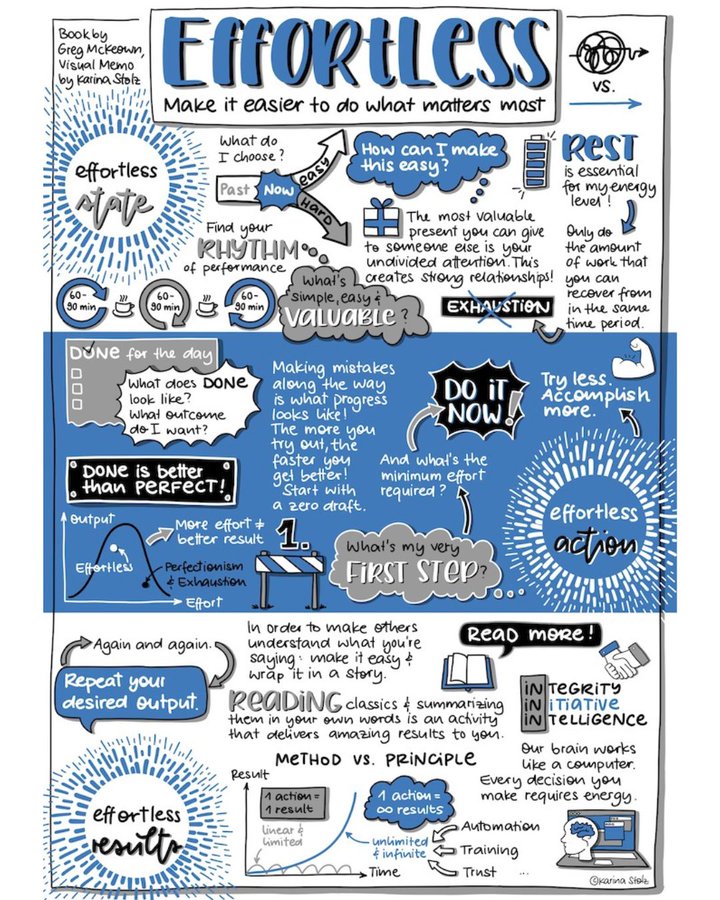 Book by
Greg McKeown,
Visual Memo
by Karina Stolz
EFFORTLESS
Make it easier to do what matters most
vs.
effortless
state
What do
I choose?
Past
Now
EASY
HARD
How can I make
this easy?
REST
is essential
for my energy
level!
Only do
the amount
of work that
you can
recover from
in the same
time period.
The most valuable
present you can give
to someone else is your
undivided attention. This
creates strong relationships!
Find your
RHYTHM
of performance
60-
90 min
60-
90 min
60-
90 min
What's
simple, easy &
VALUABLE?
EXHAUSTION
DONE for the day
What does DONE
look like?
What outcome
do I want?
DONE is better
than PERFECT!
Making mistakes
along the way
is what progress
looks like!
The more you
try out, the
faster you
get better!
Start with
a zero draft.
DO IT
NOW!
And what's the
minimum effort
required?
Try less.
Accomplish
more.
effortless
action
Output
More effort ≠
better result
Effortless
Perfectionism
& Exhaustion
Effort
1.
What's my very
FIRST STEP?
Again and again.
Repeat your
desired output.
In order to make others
understand what you're
saying: make it easy &
wrap it in a story.
READ MORE!
READING classics & summarizing
them in your own words is an activity
that delivers amazing results to you.
INTEGRITY
INITIATIVE
INTELLIGENCE
Our brain works
like a computer.
Every decision you
make requires energy.
effortless
results
METHOD VS. PRINCIPLE
Result
1 action =
1 result
linear &
limited
1 action =
∞ results
unlimited
& infinite
Automation
Training
Trust ...
Time
©Karina Stolz